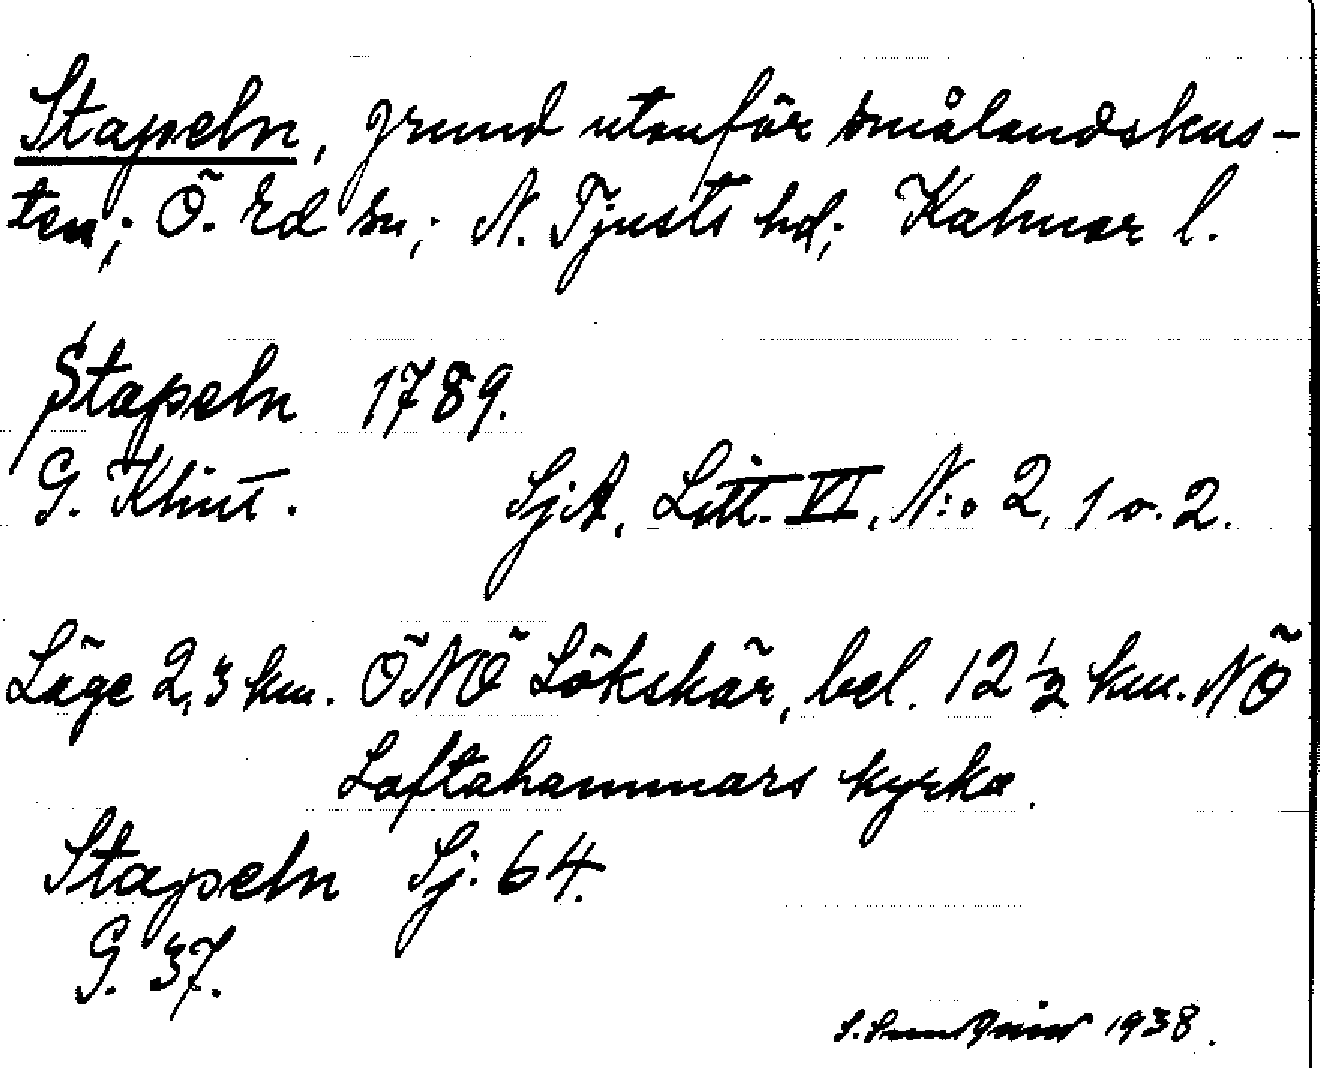 Stapeln, grund utanför smålandskus-
ten; Ö. Ed sn; N. Tjusts hd; Kalmar l.
Stapeln 1789.
G. Klint. SjA, Litt. VI, N:o 2, 1 o. 2.
Läge 2,3 km. ÖNÖ Lökskär, bel. 12 1/2 km. NÖ
Loftahammars kyrka.
Stapeln Sj: 64.
G. 37.
1938.